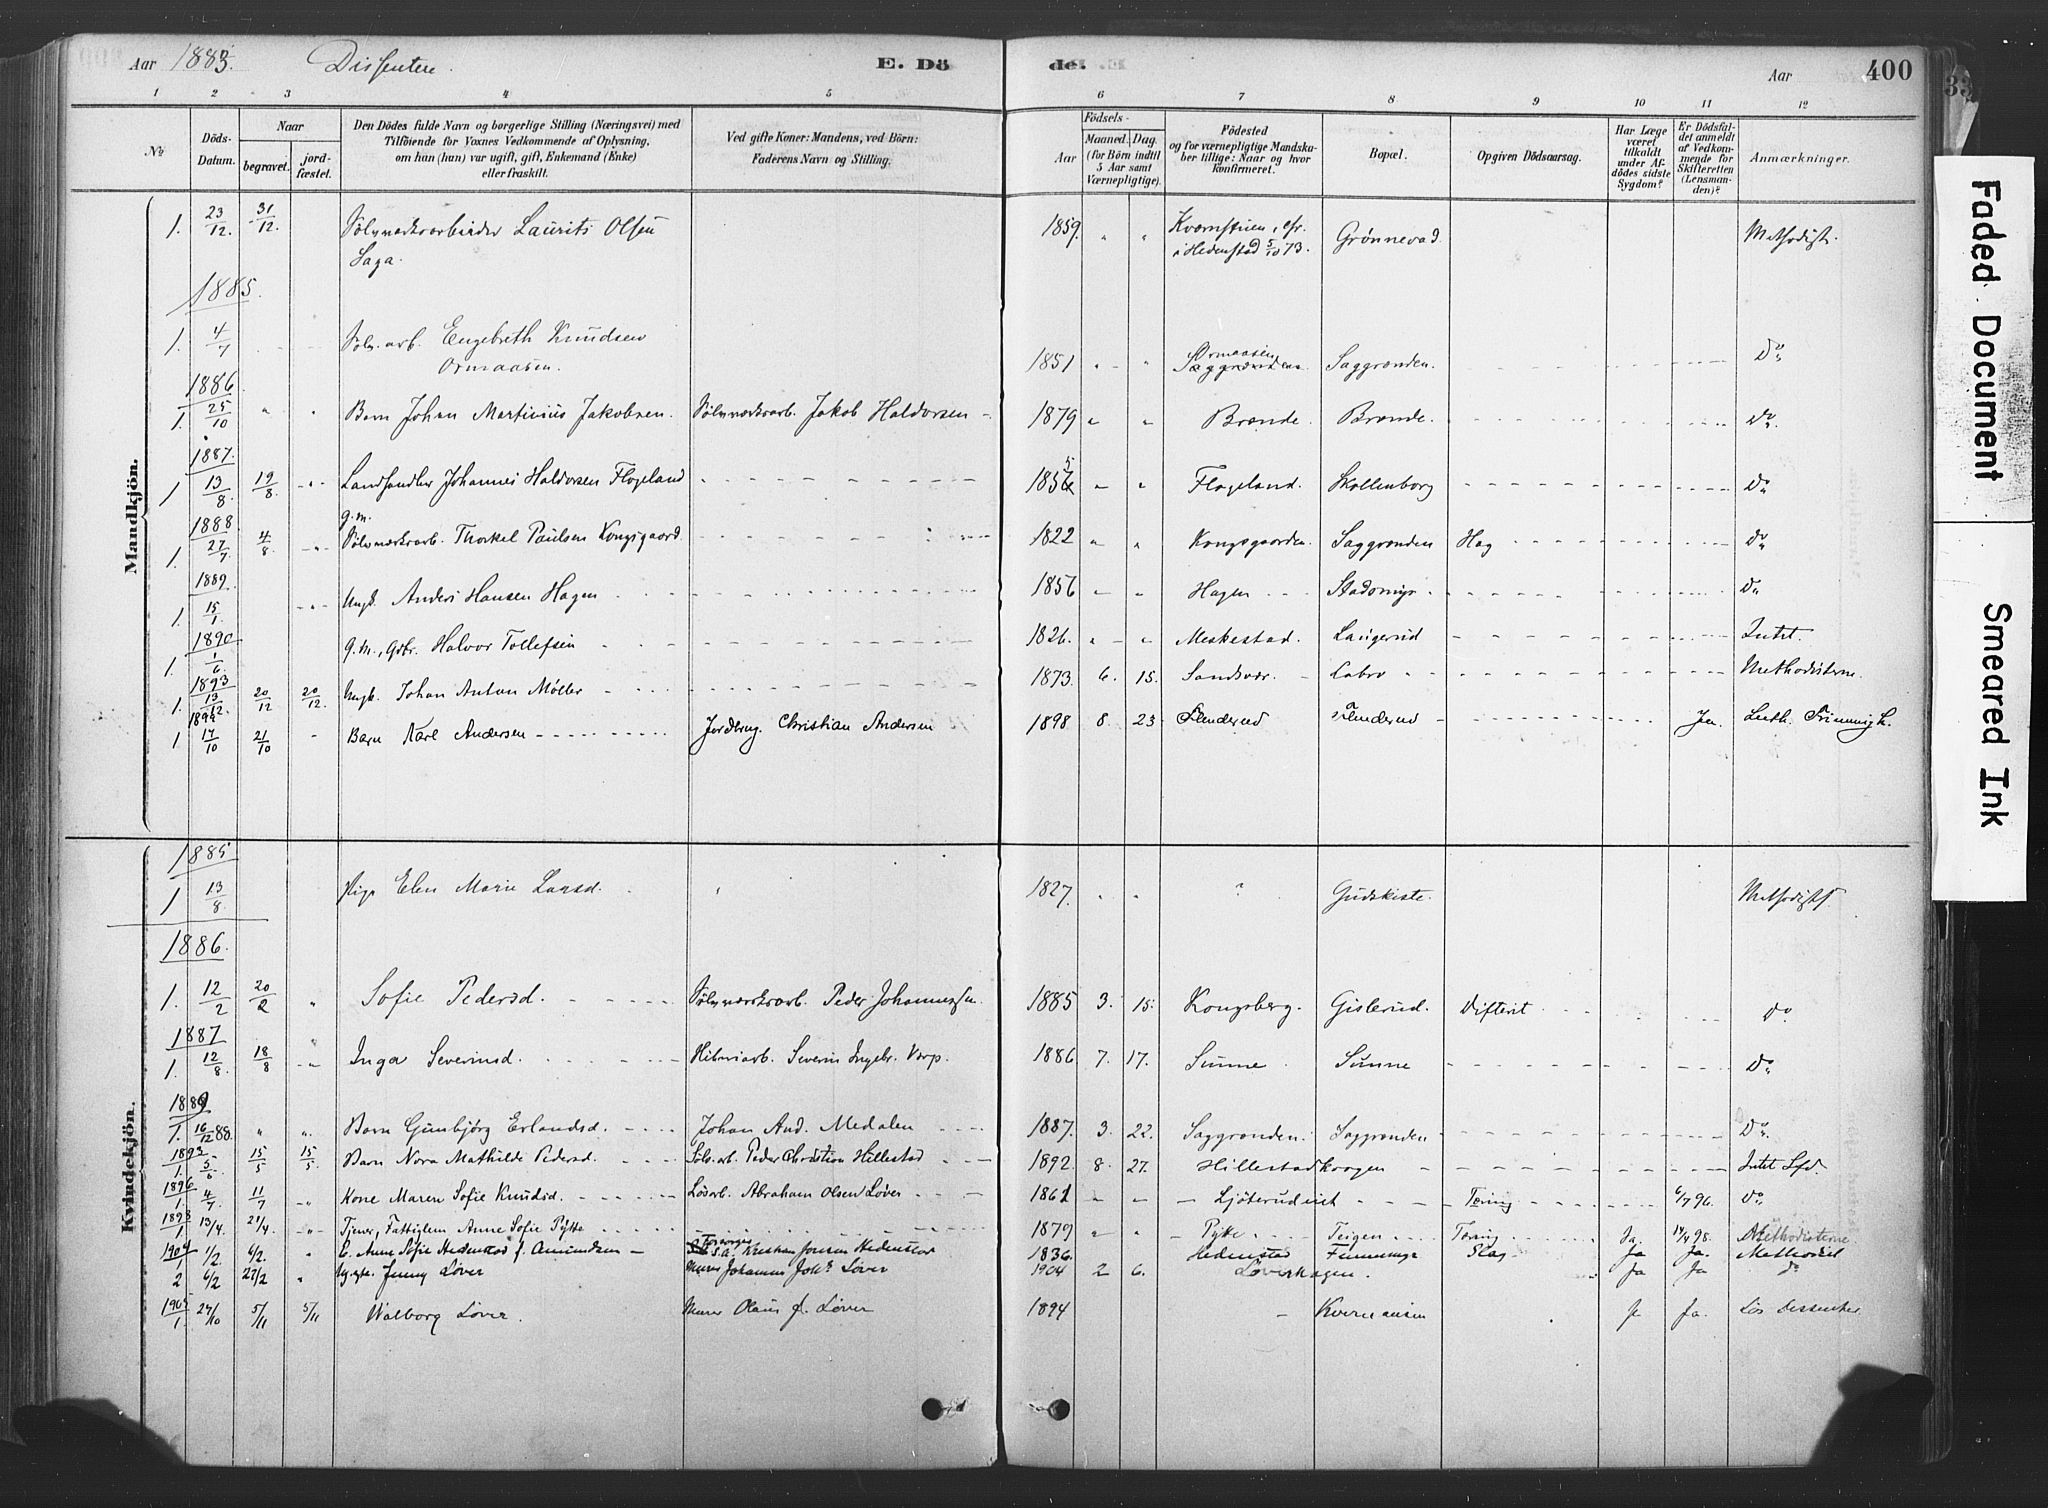 Aar 1883. Dissentere. E. Dö de. Aar 400
1 2 3 4 5 6 7 8 9 10 11 12
№
Döds-Datum.
Naar
begravet.
jord-fæstet.
Den Dödes fulde Navn og borgerlige Stilling (Næringsvei) med
Tilföiende for Voxnes Vedkommende af Oplysning,
om han (hun) var ugift, gift, Enkemand (Enke)
eller fraskilt.
Ved gifte Koner: Mandens, ved Börn:
Faderens Navn og Stilling.
Födsels-
Aar
Maaned. Dag.
(for Börn indtil
5 Aar samt
Værnepligtige).
Födested
og for værnepligtige Mandska-
ber tillige: Naar og hvor
konfirmeret.
Bopæl.
Opgiven Dödsaarsag.
Har Læge
været
tilkaldt
under Af-
dödes sidste
Sygdom?
Er Dödsfal-
det anmeldt
af Vedkom-
mende for
Skifteretten
(Lensman-
den)?
Anmærkninger.
Mandkjön.
1. 23/12. 31/12. Sölvværksarbeider Laurits Olsen 1859. " " Kværnstuen, cfr. Grønnevad. Methodist.
Saga. i Hedenstad 5/10 73.
1885.
1. 4/7 Sölv.arb. Engebreth Knudsen 1851 " " Ormaasen Saggrenden. Do
Ormaasen. Saggrenden
1886
1. 25/10 " " Barn Johan Martinius Jakobsen. Sölvværksarb. Jakob Haldorsen 1879 " " Brænde. Brænde. do.
1887.
1 13/8 19/8. " Landhandler Johannes Haldorsen Flogeland 1855 " " Flogeland. Skollenborg Do
1888
1. 27/7. 4/8 " g.m. Sölvværksarb. Thorkel Paulsen Kongsgaard 1822 " " Kongsgaarden. Saggrenden Do
1889.
1. 15/1. " Ungk. Anders Hansen Hagen 1856 " " Hagen Stadsmyr Do
1890
1. 1/6. G.m., Gdbr. Halvor Tollefsen 1826. " " Meskestad. Laugerud Intet.
1893
1. 13/12. 20/12 20/12. Ungk. Johan Anton Møller 1873. 6. 15. Sandsvær. Labro Methodisterne.
1899
1 14/10 21/10 " Barn Karl Andersen Jordbrug. Christian Andersen 1898 8 23 Ja. Luth. Frimenigh.
Kvindekjön.
1885
1 13/8. Pige Elen Marie Larsd. " 1827. " " " Gudskiste. Methodist.
1886.
1. 12/2 20/2 " Sofie Pedersd. Sölvværksarb. Peder Johannessen. 1885 3. 15. Kongsberg. Gislerud. Difterit Do
1887
1. 12/8. 18/8 " Inga Severinsd. Severin Ingebr. Varp. 1886 7. 17. Sunne Sunne Do
1889
1. 16/12 88. " " Barn Gunbjørg Erlandsd. Johan And. Medalen 1887. 3. 22. Saggrenden. Saggrenden Do.
1893
1. 5/6 15/5 15/5 Barn Nora Mathilde Pedersd. Sölv.arb. Peder Christian Hillestad 1892 8. 27. Hillestadkragen Intet Sfd.
1896
1. 4/7. 11/7 " Kone Maren Sofie Knudsd. Løsarb. Abraham Olsen Løver 1861 " " Ljøterudeiet Tæring 6/7 96. Do
1898
1. 13/4. 21/4. " Tjener, Fattiglem Anne Sofie Pytte 1879 " " Pytte. Teigen Tæring Ja. 14/4 98. Methodisterne.
1904
1 1/2. 6/2. " E. Anne Sofie Hedenstad f. Amundsen Kristian Jonsen Hedenstad 1836. Hedenstad Funnemyr Slag Ja Ja. Methodist
2 6/2 22/2 " Jenny Løver Murer Johannes Joh. Løver 1904 2 6. Løverhagen. Ja Ja do
1905
1. 27/10 5/11 5/11 Walborg Løver. Murer Olaus J. Løver 1894 Kvernaasen Ja. Løs Dessenter
Faded Document
Smeared Ink